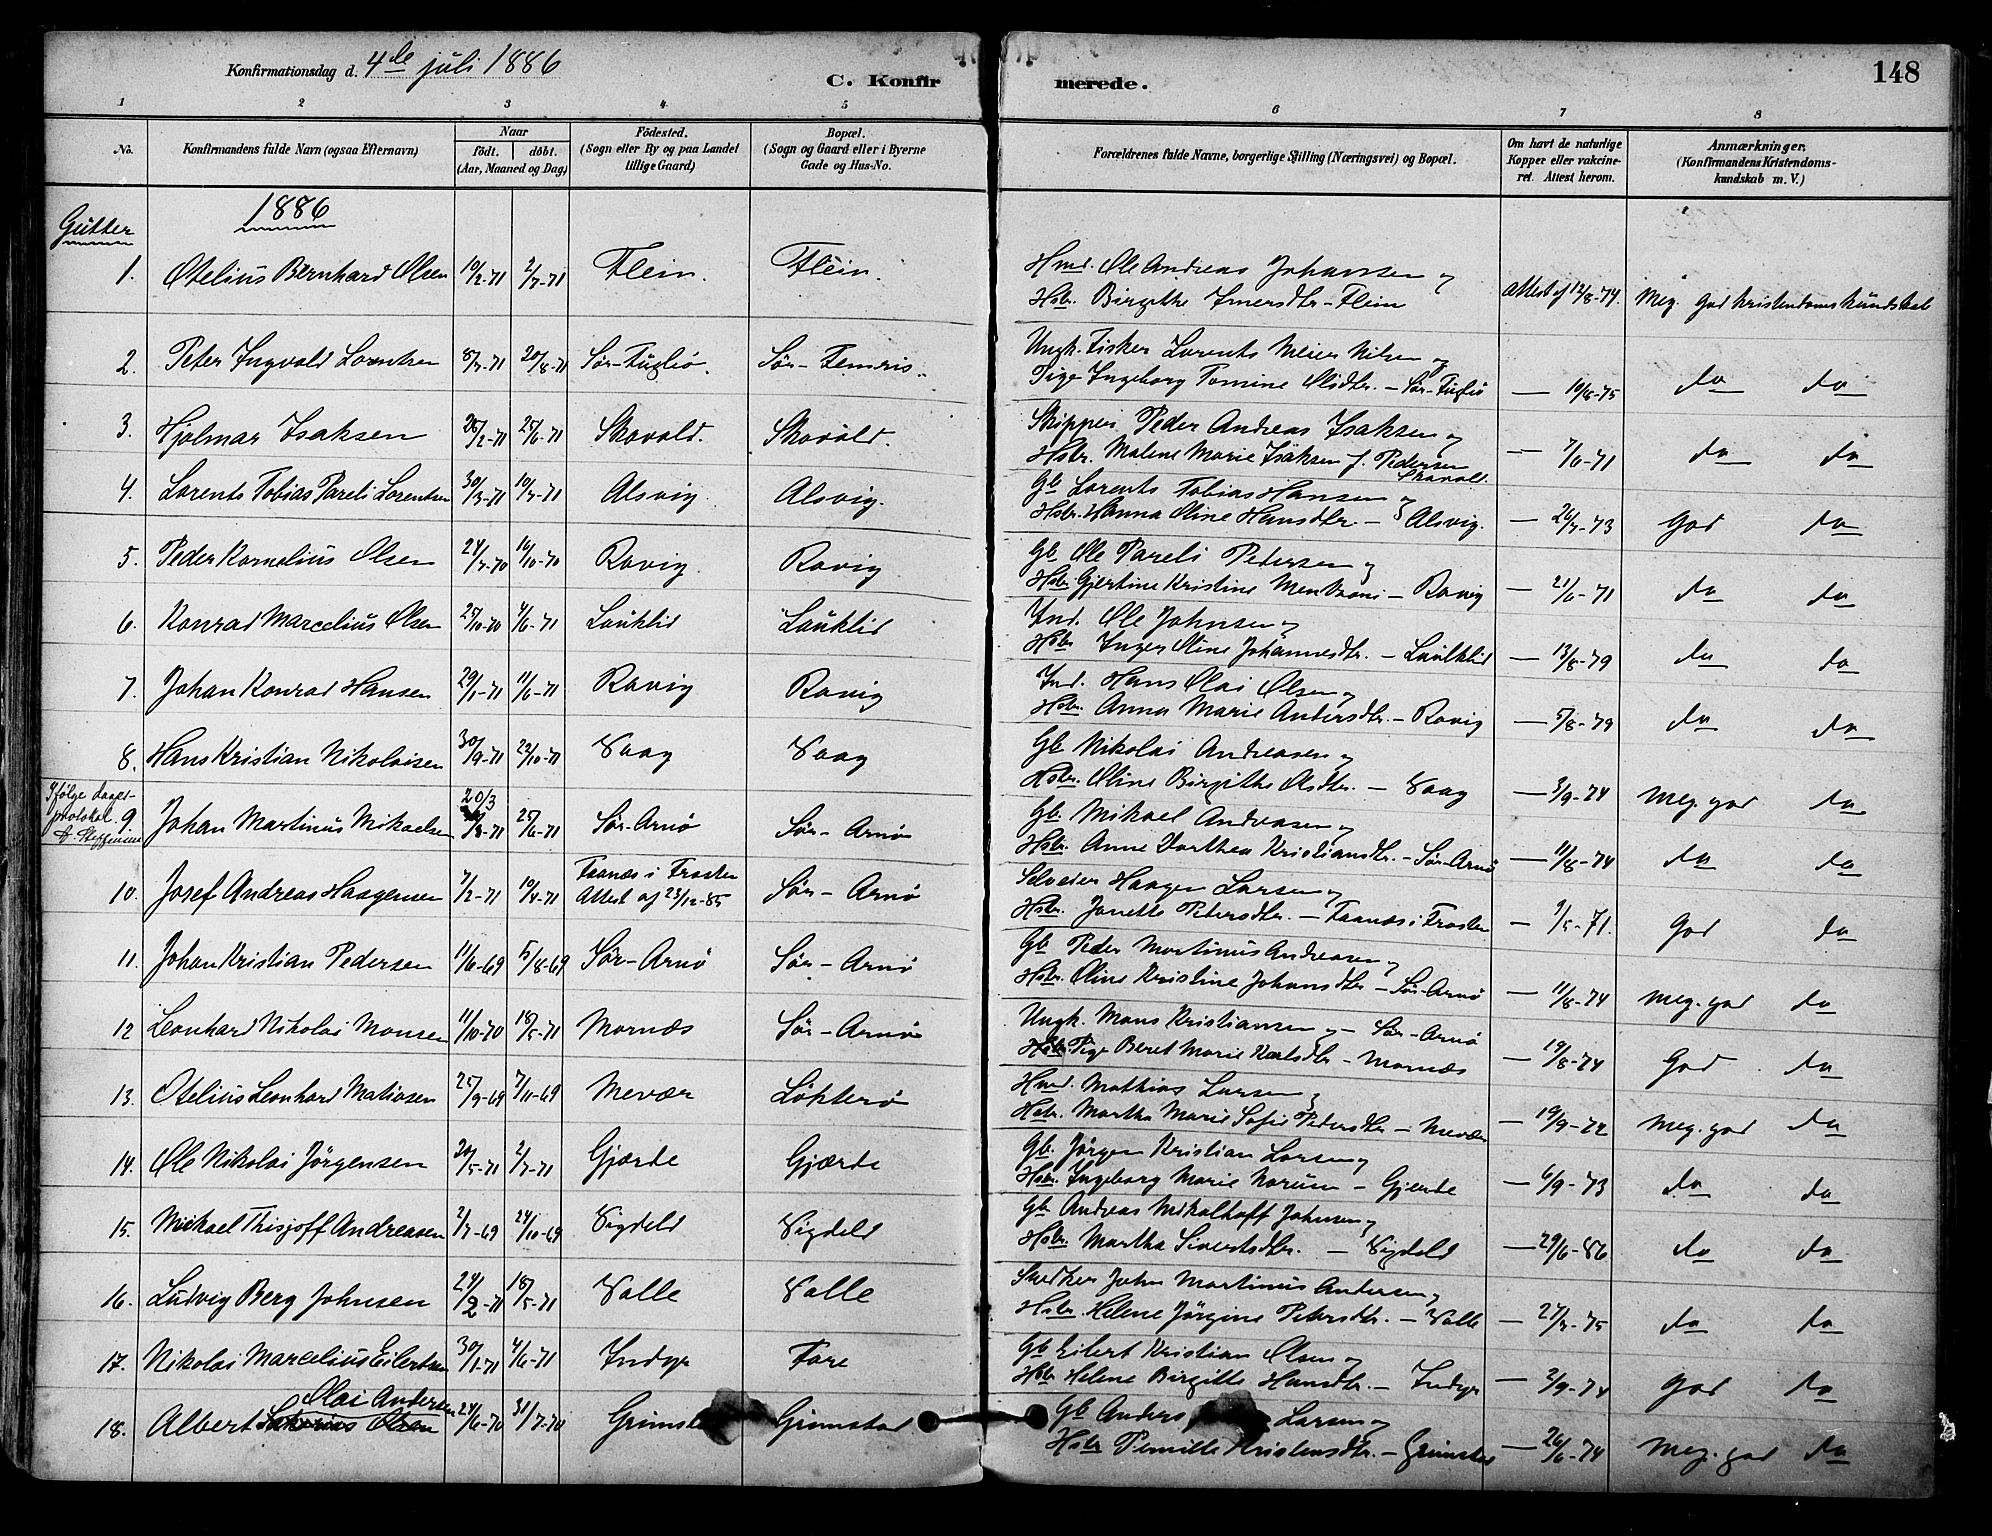 Konfirmationsdag d. 4de juli 1886
C. Konfir merede.
148
1 2 3 4 5 6 7 8
No.
Konfirmandens fulde Navn (ogsaa Efternavn)
Naar
födt. döbt.
(Aar, Maaned og Dag)
Födested.
(Sogn eller By og paa Landet
tillige Gaard)
Bopæl.
(Sogn og Gaard eller i Byerne
Gade og Hus-No.
Forældrenes fulde Navne, borgerlige Stilling (Næringsvei) og Bopæl.
Om havt de naturlige
Kopper eller vakcine-
ret. Attest herom.
Anmærkninger.
(Konfirmandens Kristendoms-
kundskab m. V.)
1886
Gutter
1. Otelius Bernhard Olsen 10/2-71 2/7-71 Flein. Flein.
Hmd. Ole Andreas Johansen og
Hsbr. Birgithe Imersdtr - Flein Attest af 12/8-74. Meg. god kristendomskundskab
2. Peter Ingvald Lorentzen 8/7-71 20/8-71 Sör-Fuglö. Sör-Femris.
Ungk. Fisker Lorents Meier Nilsen og
Pige Ingeborg Tomine Olsdtr. - Sör-Fuglö — 10/8-75 do do
3. Hjalmar Isaksen 26/2-71 25/6-71 Skavold. Skavold.
Skipper Peder Andreas Isaksen og
Hsbr. Malene Marie Isaksen f. Pedersen
Skavold. — 7/6-71 do do
4. Lorents Tobias Pareli Lorentzen 30/3-71 10/7-71 Alsvig. Alsvig.
Gb Lorents Tobias Hansen og
Hsbr. Hanna Oline Hansdtr. - Alsvig. — 26/7-73 God do
5. Peder Kornelius Olsen 24/7-70 16/10-70 Ravig. Ravig
Gb Ole Pareli Petersen og
Hsbr. Gjertine Kristine Mentzoni - Ravig — 21/6-71 do do
6. Konrad Marcelius Olsen 25/10-70 4/6-71 Lauklid Lauklid
Ind. Ole Johnsen og
Hsbr Inger Oline Johannesdtr. - Lauklid — 13/8-79 do do
7. Johan Konrad Hansen 29/1-71 11/6-71 Ravig Ravig
Ind. Hans Olai Olsen og
Hsbr. Anna Marie Andersdtr. - Ravig — 5/8-79 do do
8. Hans Kristian Nikolaisen 30/9-71 22/10-71 Vaag Vaag
Gb Nikolai Andreasen og
Hsbr. Oline Birgithe Olsdtr. - Vaag — 3/9-74 Meg. god do
Ifölge daabs-
protokol 9 Johan Martinus Mikaelsen 20/3 -71 25/6-71 Sör-Arnö Sör-Arnö
Gb. Mikael Andreasen og
Hsbr. Anne Dorthea Kristiansdtr. - Sör-Arnö — 11/8-74 do do
10. Josef Andreas Haagensen 7/2-71 10/4-71 Faanæs i Frosten
Attest af 23/12-85 Sör-Arnö
Selveier Haagen Larsen og
Hsbr. Janette Petersdtr. - Faanæs i Frosten — 9/5-71. God do
11. Johan Kristian Pedersen 11/6-69 5/8-69 Sör-Arnö Sör-Arnö
Gb Peder Martinus Andreasen og
Hsbr. Oline Kristine Johansdtr - Sör-Arnö — 11/8-74 Meg. god do
12 Leonhard Nikolai Monsen 11/10-70 18/5-71 Mornæs Sör-Arnö
Ungk. Mons Kristiansen og - Sör-Arnö
Pige Beret Marie Karlsdtr - Mornæs — 19/8-74 God do
13. Otelius Leonhard Matiasen 25/9-69 7/11-69 Mevær Lökterö
Hmd. Mathias Larsen og
Hsbr. Martha Marie Sofie Petersdtr - Mevær — 19/9-72 Meg. god do
14. Ole Nikolai Jörgensen 20/5-71 2/7-71 Gjærde Gjærde
Gb. Jörgen Kristian Larsen og
Hsbr. Ingeborg Marie Norum - Gjerde — 6/9-73 do do
15. Mikael Thisjoff Andreasen 2/7-69 24/10-69 Sigdeld Sigdeld
Gb Andreas Mikalhoff Johnsen og
Hsbr. Martha Sivertsdtr. - Sigdeld — 29/6-86 do do
16. Ludvig Berg Johnsen 24/2-71 18/5-71 Valle Valle
Snedker John Martinus Andersen og
Hsbr. Helene Jørgine Petersdtr. - Valle — 27/7-75 do do
17. Nikolai Marcelius Eilertsen 30/1-71 4/6-71 Indyr Fore
Gb Eilert Kristian Olsen og
Hsbr Helene Birgitte Hansdtr. - Indyr — 2/9-74 God do
Olai Andersen
18. Albert Olsen 24/6-70 31/7-70 Grimst Grimstad
Gb Anders Larsen og
Hsbr Pernille Kristensdtr. - Grimstad — 26/6-74 Meg. god do